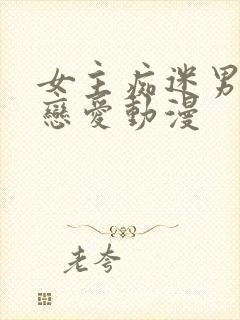 女主痴迷男
戀愛動漫
老夸